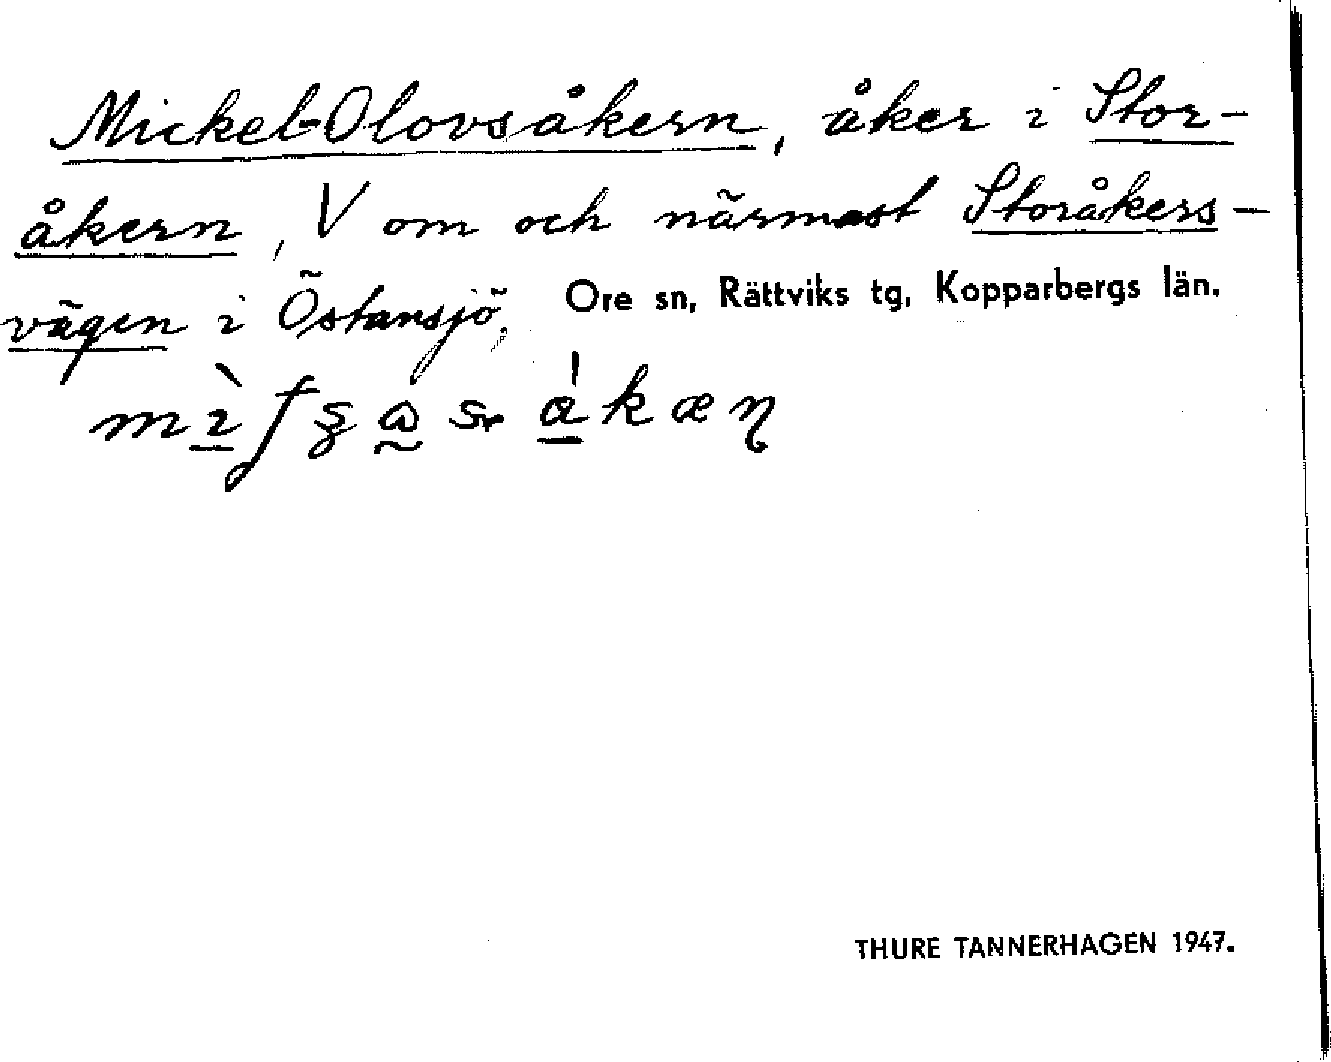 Mickel-Olovsåkern, åker i Stor-
åkern, V om och närmast Storåkers-
vägen i Östansjö, Ore sn, Rättviks tg, Kopparbergs län.
THURE TANNERHAGEN 1947.